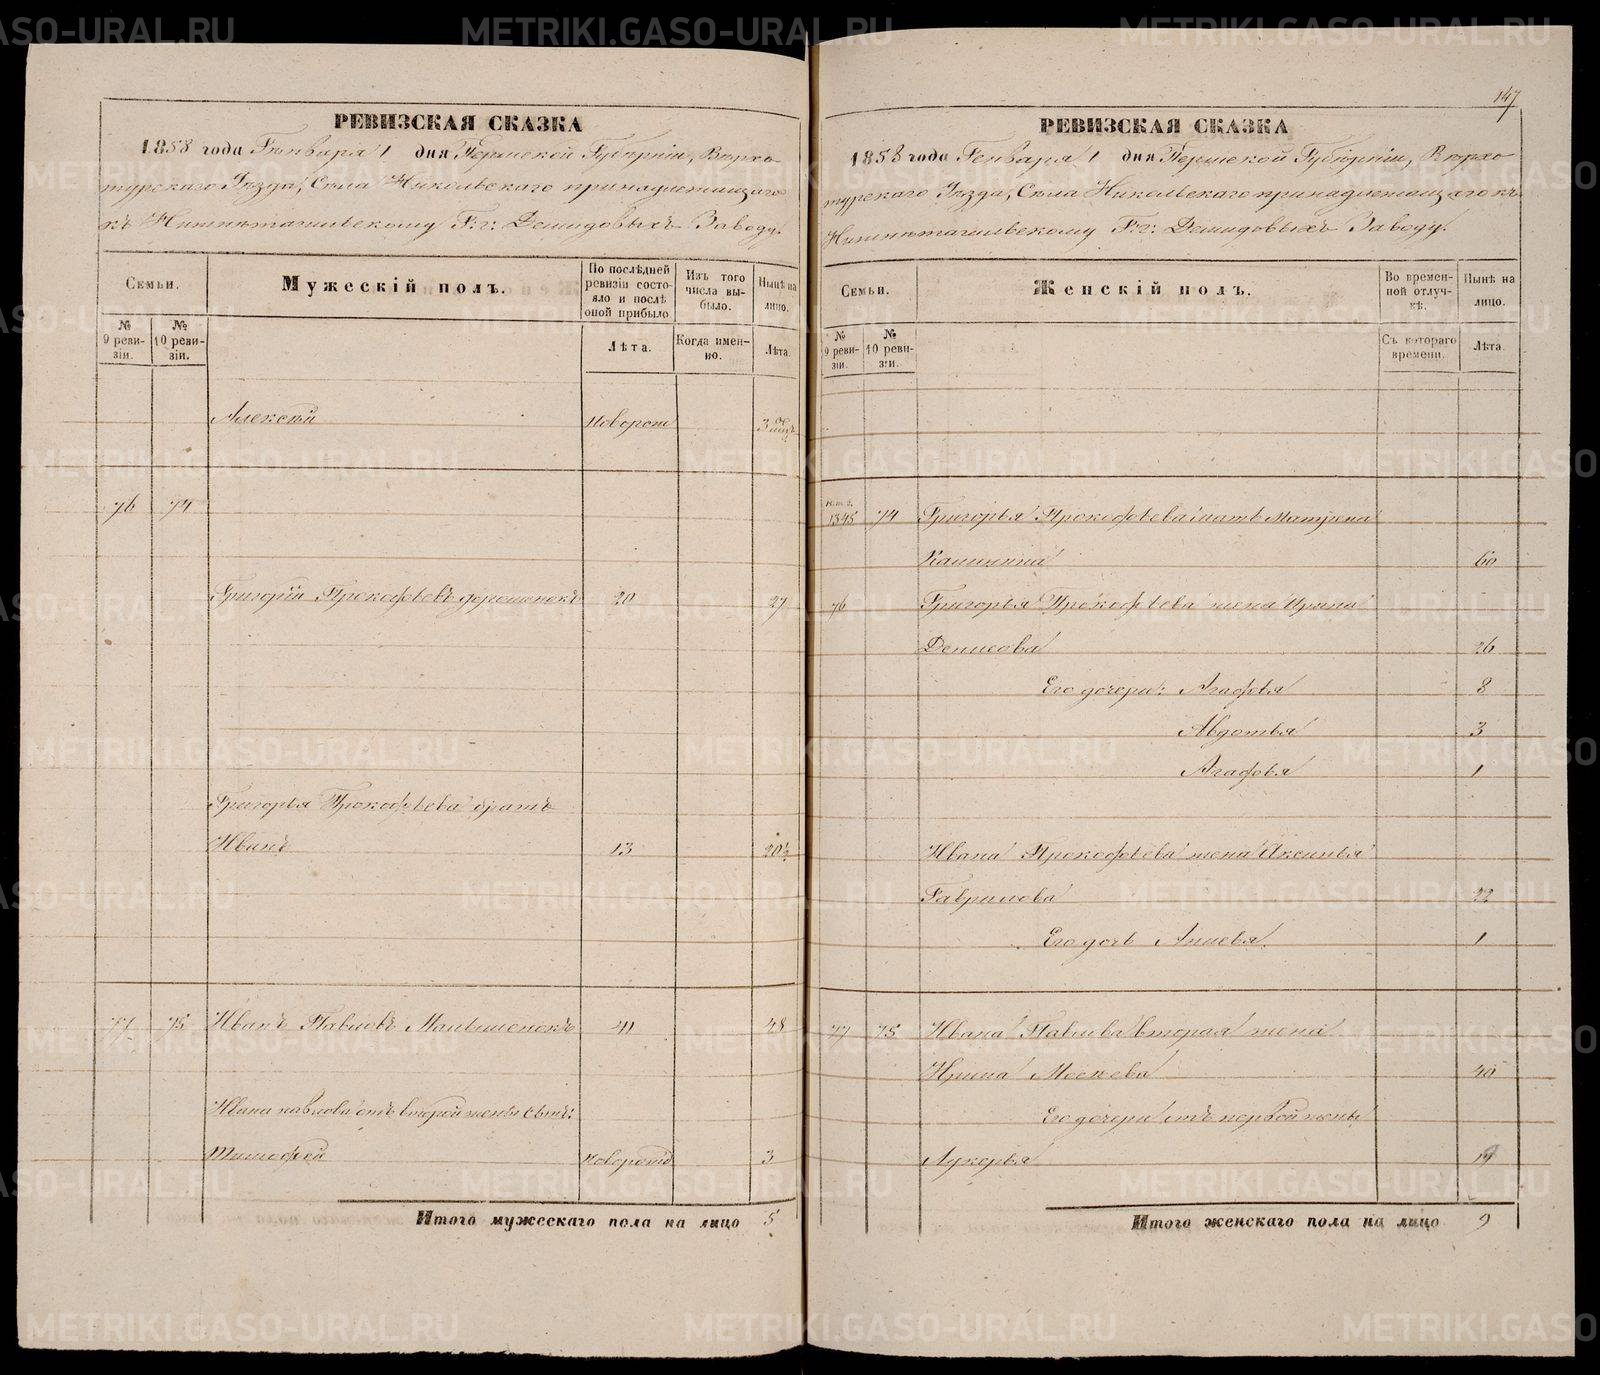 РЕВИЗСКАЯ СКАЗКА
1858 года Генваря 1 дня Пермской Губерніи, Верхо-
турскаго Уѣзда, Села Никольскаго принадлежащаго
къ Нижнетагильскому Г.г. Демидовыхъ Заводу.
Семьи.
Мужескій полъ.
По послѣдней ревизіи состояло и послѣ оной прибыло
Изъ того числа выбыло.
Нынѣ на лицо.
№ 9 ревизіи.
№ 10 ревизіи.
Лѣта.
Когда именно.
Лѣта.
Алексѣй новорож 3
76 74
Григорій Прокофьевъ 20 27
Григорья Прокофьева братъ
Иванъ 13 20½
77 75 Иванъ Павловъ Малышенокъ 41 48
Ивана Павлова отъ второй жены сынъ:
Тимофей новорожд 3
Итого мужескаго пола на лицо 5
147
РЕВИЗСКАЯ СКАЗКА
1858 года Генваря 1 дня Пермской Губерніи, Верхо-
турскаго Уѣзда, Села Никольскаго принадлежащаго къ
Нижнетагильскому Г.г. Демидовыхъ Заводу.
Семьи.
Женскій полъ.
Во временной отлучкѣ.
Нынѣ на лицо.
№ 9 ревизіи.
№ 10 ревизіи.
Съ котораго времени.
Лѣта.
1845 74 Григорья Прокофьева мать Матрена
Калинина 60
76 Григорья Прокофьева жена Ирина
Денисова 26
Его дочери: Агафья 8
Авдотья 3
Агафья 1
Ивана Прокофьева жена Аксинья
Гаврилова 22
Его дочь Аписья 1
77 75 Ивана Павлова вторая жена
Ирина Москева 40
Его дочери отъ первой жены
Лукерья 19
Итого женскаго пола на лицо 9
METRIKI.GASO-URAL.RU